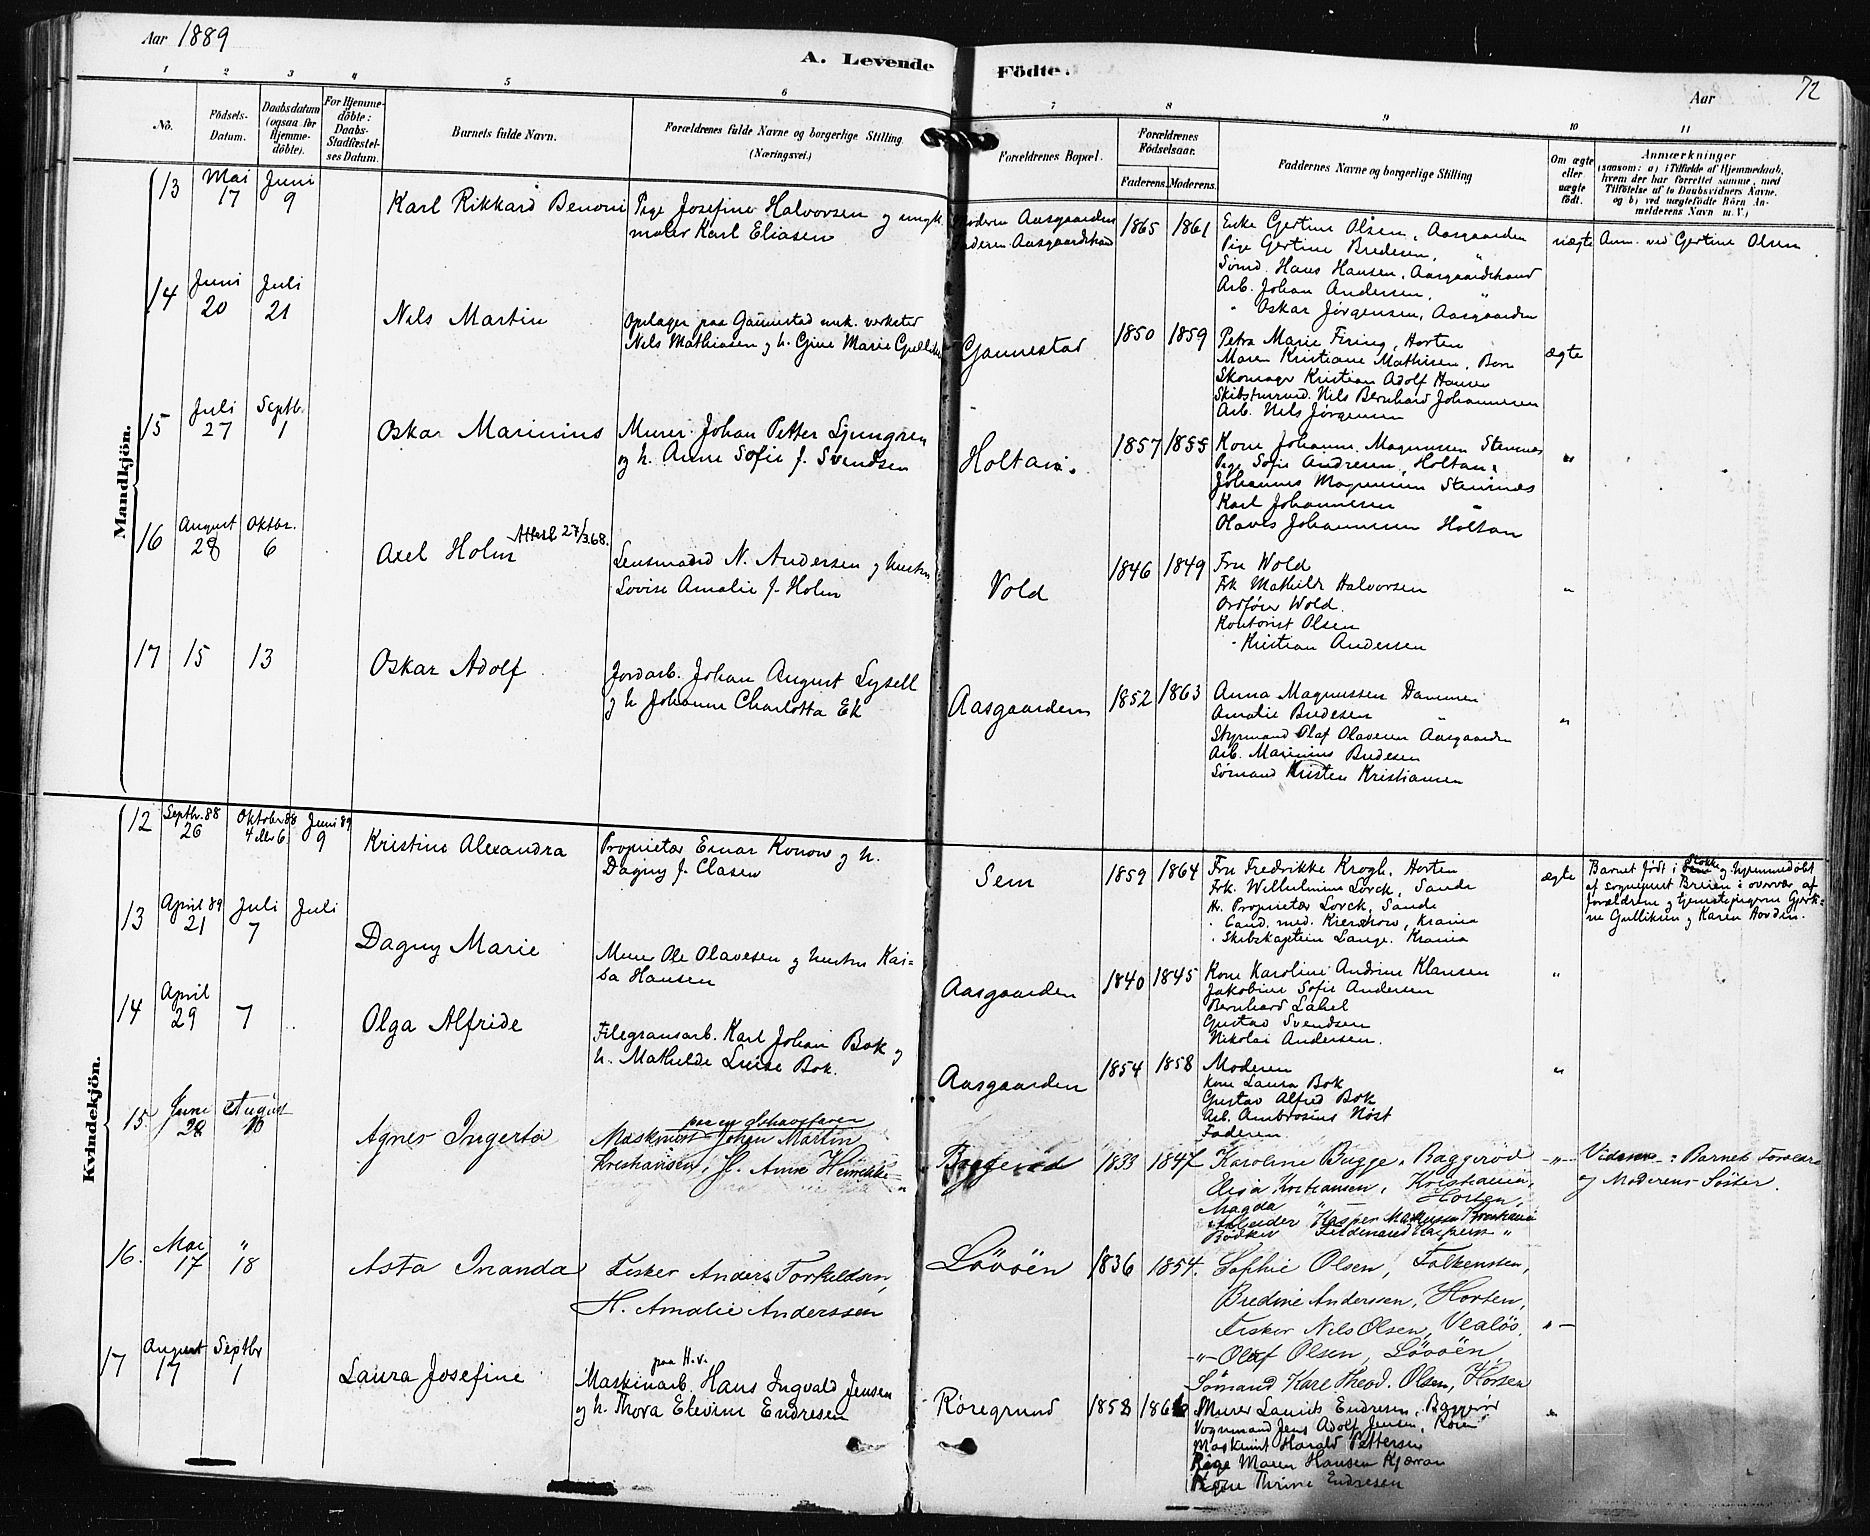 Aar 1889
A. Levende Födte.
Aar 72
1 2 3 4 5 6 7 8 9 10 11
No.
Födsels-Datum.
Daabsdatum (ogsaa for Hjemmedöbte).
For Hjemmedöbte: Daabs-Stadfæstelses Datum.
Barnets fulde Navn.
Forældrenes fulde Navne og borgerlige Stilling (Næringsvei.)
Forældrenes Bopæl.
Forældrenes Födselsaar.
Faderens. Moderens.
Faddernes Navne og borgerlige Stilling
Om ægte eller uægte födt.
Anmærkninger
(saasom: a) i Tilfælde af Hjemmedaab, hvem der har forrettet samme, med Tilföielse af to Daabsvidners Navne, og b) ved uægtefödte Börn Anmelderens Navn m. V.)
Mandkjön.
13 Mai 17 Juni 9
Karl Rikkard Benoni
Pige Josefine Halvorsen og ungk.
maler Karl Eliasen
Moderen Aasgaarden
Faderen Aasgaardstrand
1865 1861
Enke Gertine Olsen, Aasgaarden
Pige Gertine Bredesen, "
Sømd. Hans Hansen, Aasgaardstrand
Arb. Johan Andersen, "
" Oskar Jørgensen, Aasgaarden
uægte
Anm. ved Gertine Olsen
14 Juni 20 Juli 21
Nils Martin
Opslager paa Gannestad mek. verksted
Nils Mathiasen og h. Gine Marie
Gannestad
1850 1859
Petra Marie Firing, Horten
Maren Kristiane Mathisen, Borre
Skomager Kristian Adolf Hansen
Nils Bernhard Johannesen
Arb. Nils Jørgensen
ægte
15 Juli 27 Septb. 1
Oskar Marinius
Murer Johan Petter Ljungren
og h. Anne Sofie f. Svendsen
Holtan.
1857 1855
Kone Johanne Magnussen Stennes
Pige Sofie Andresen, Holtan
Johannes Magnussen Stennes
Karl Johannesen "
Olaves Johannesen Holtan
"
16 August 28 Oktbr. 6
Axel Holm
Attest 27/3 68.
Lensmand N. Andersen og hustru
Lovise Amalie f. Holm
Vold
1846 1849
Fru Wold
Frk Mathilde Halvorsen
Ordfører Wold.
Kontorist Olsen
" Kristian Andersen
"
17 15 13
Oskar Adolf
Jordarb. Johan August Lysell
og h Johanne Charlotta Ek
Aasgaarden
1852 1863
Anna Magnussen Dammen
Amalie Bredesen "
Styrmand Olaf Olavesen Aasgaarden
Arb. Marinius Bredesen
Sømand Kristen Kristiansen
"
Kvindekjön.
12 Septbr. 88 26 Oktober 88 4 eller 6 Juni 89 9
Kristine Alexandra
Proprietær Einar Konow og h.
Dagny f. Clasen
Sem
1859 1864
Fru Fredrikke Krogh, Horten
Frk. Wilhelmine Lorck, Sande
Hr. Proprietær Lorck, Sande
" Cand. med. Kierskow, Krania
" Skibskaptein Lange. Krania
ægte
Barnet født i Stokke og hjemmedøbt
af sogneprest Breien i overvær af
forældrene og
Gulliksen og Karen Hovden.
13 April 89 21 Juli 7 Juli
Dagny Marie
Murer Ole Olavesen og hustru Kai-
sa Hansen
Aasgaarden
1840 1845
Kone Karoline Andrine Klausen
Jakobine Sofie Andersen
Bernhard Lahel
Gustav Svendsen
Nikolai Andersen.
"
14 April 29 7
Olga Alfride
Filegransarb. Karl Johan Bok og
h. Mathilde Luise Bok.
Aasgaarden
1854 1858
Moderen
Kone Laura Bok
Gustav Alfred Bok
Arb. Ambrosius Nöst
Faderen.
"
15 Juni 28 August 18
Agnes Ingerta
Maskinist Johan Martin
Kristiansen, H. Anne
1833 1847
Karoline Bugge, Baggeröd
Elisa Kristiansen, Kristiania,
Magda " Horten,
Arbeider Kasper Kristiania
Bödker Ferdinand "
"
Barnets Forældre
og Moderens Söster.
16. Mai 17 " 18
Asta Inanda
Fisker Anders Torkeldsen,
H. Amalie Anderssen
Lövöen
1836 1854.
Sophie Olsen, Falkensten,
Bredine Anderssen, Horten,
Fisker Nils Olsen, Vealös,
" Olaf Olsen, Lövöen,
Sömand Karl Theod. Olsen, Horten
"
17 August 17 Septbr 1
Laura Josefine
paa H.v.
Maskinarb. Hans Ingvald Jensen
og h. Thora Elevine Endresen
Röregrund
1858
Murer Laurits Endresen, Baggeröd
Vognmand Jens Adolf Jensen, Rören
Maskinist Harald Pettersen
Pige Maren Hansen Kjærran
Thrine Endresen
"